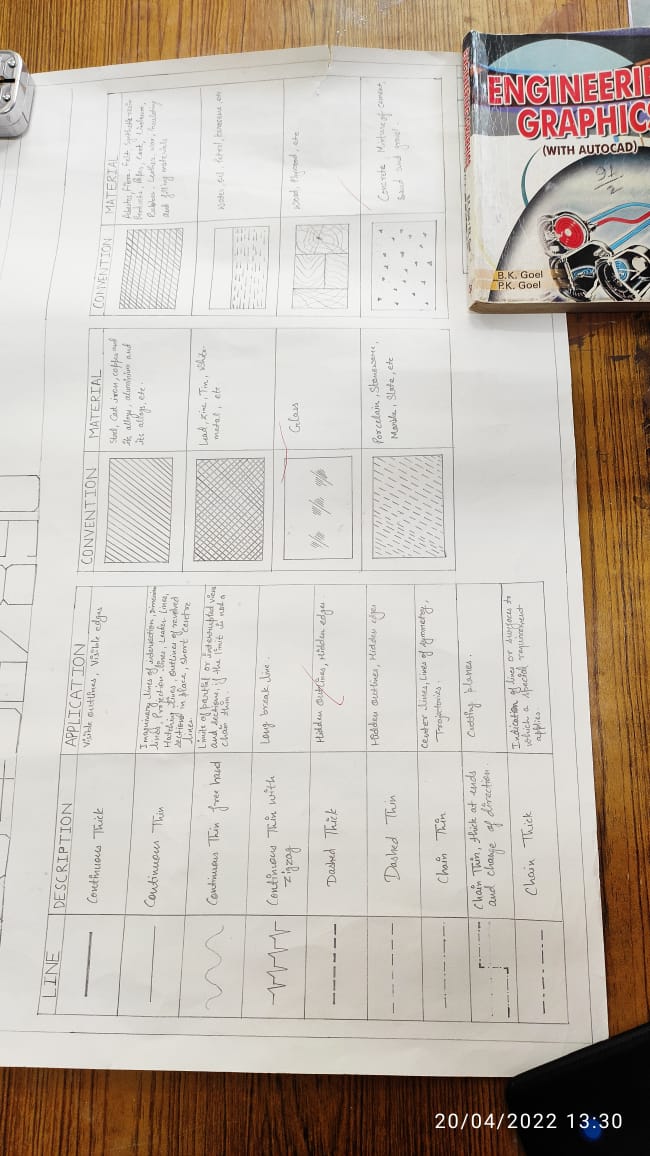 LINE
DESCRIPTION
APPLICATION
Continuous Thick
Visible outlines, Visible edges
Continuous Thin
Imaginary lines of intersection, Dimension
lines, Projection lines, Leader Lines,
Hatching lines, outlines of revolved
sections in place, short centre
lines.
Continuous Thin free hand
Limits of partial or interrupted views
and sections, if the limit is not a
chain thin.
Continuous Thin With
zigzag
Long break line.
Dashed Thick
Hidden outlines, Hidden edges
Dashed Thin
Hidden outlines, Hidden edges
Chain Thin
Center lines, Lines of symmetry,
Trajectories.
Chain Thin, thick at ends
and change of direction.
Cutting planes.
Chain Thick
Indication of lines or surfaces to
which a special requirement
applies.
CONVENTION
MATERIAL
Steel, Cast iron, copper and
its alloys, aluminium and
its alloys, etc.
Lead, zinc, Tin, White-
metal, etc
Glass
Porcelain, Stoneware,
Marble, Slate, etc
CONVENTION
MATERIAL
Asbestos, Fibre, Felt, Synthetic resin
Products, Paper, Cork, Linoleum,
Rubber, Leather, wax, insulating
and filling materials
Water, oil, Petrol, kerosene, etc
Wood, Plywood, etc
Concrete Mixture of cement,
sand and gravel
ENGINEERI
GRAPHICS
(WITH AUTOCAD)
B.K. Goel
P.K. Goel
20/04/2022 13:30